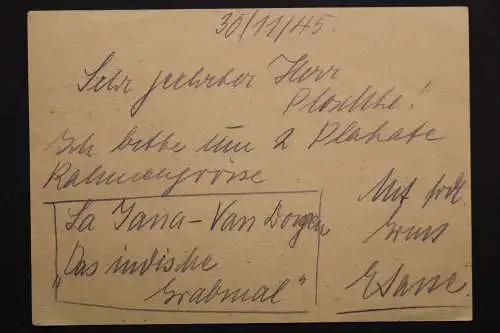 30/11/45.
Sehr geehrter Herr
Ploschke!
Ich bitte um 2 Plakate
Rahmengrösse
La Jana - Van Dongen
"Das indische
Grabmal"
Mit frdl.
Gruss